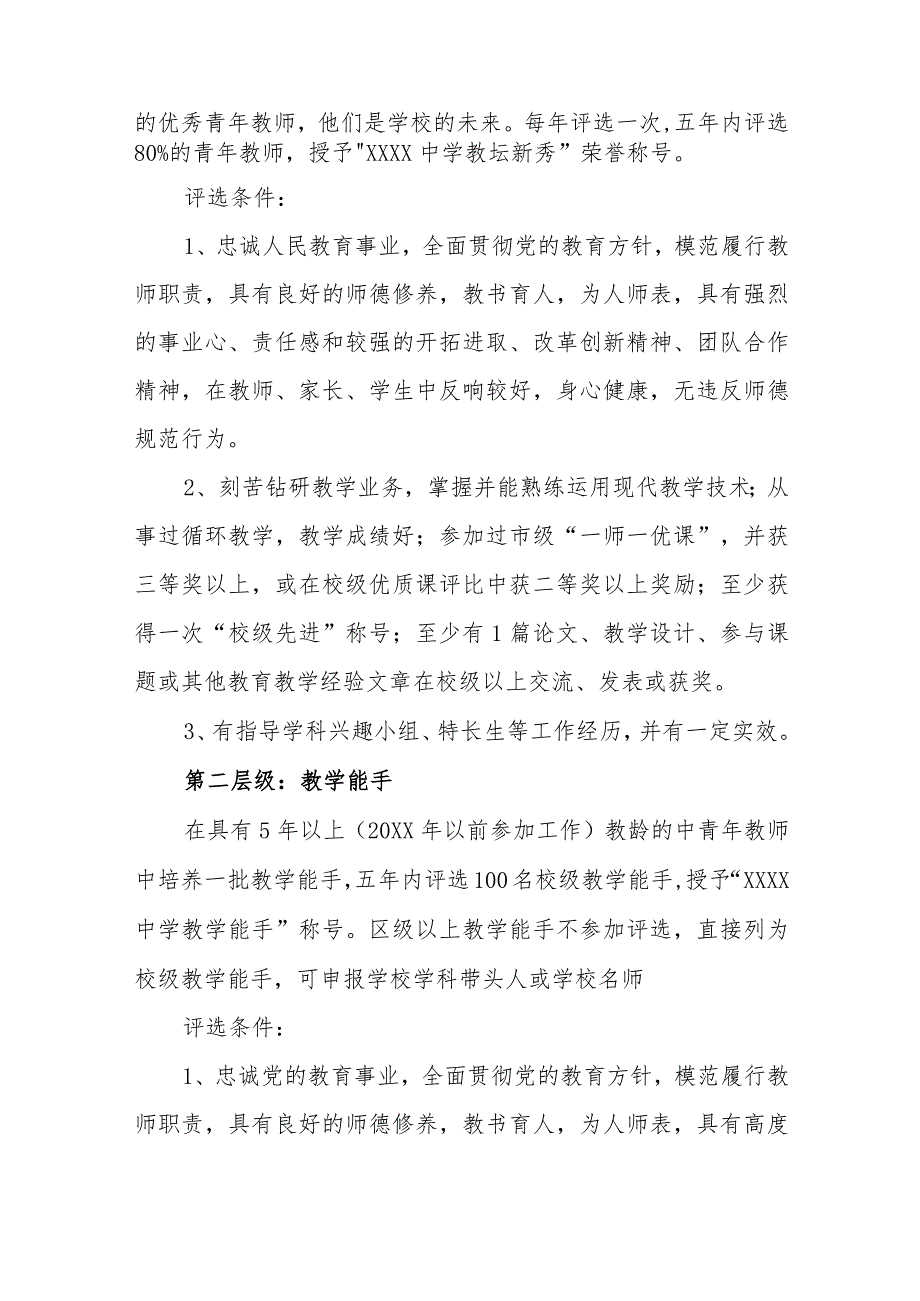 的优秀青年教师，他们是学校的未来。每年评选一次,五年内评选
80%的青年教师，授予"XXXX 中学教坛新秀”荣誉称号。
评选条件：
1、忠诚人民教育事业，全面贯彻党的教育方针，模范履行教
师职责，具有良好的师德修养，教书育人，为人师表，具有强烈
的事业心、责任感和较强的开拓进取、改革创新精神、团队合作
精神，在教师、家长、学生中反响较好，身心健康，无违反师德
规范行为。
2、刻苦钻研教学业务，掌握并能熟练运用现代教学技术；从
事过循环教学，教学成绩好；参加过市级“一师一优课”，并获
三等奖以上，或在校级优质课评比中获二等奖以上奖励；至少获
得一次“校级先进”称号；至少有 1 篇论文、教学设计、参与课
题或其他教育教学经验文章在校级以上交流、发表或获奖。
3、有指导学科兴趣小组、特长生等工作经历，并有一定实效。
第二层级：教学能手
在具有 5 年以上（20XX 年以前参加工作）教龄的中青年教师
中培养一批教学能手,五年内评选 100 名校级教学能手,授予“XXXX
中学教学能手”称号。区级以上教学能手不参加评选，直接列为
校级教学能手，可申报学校学科带头人或学校名师
评选条件：
1、忠诚党的教育事业，全面贯彻党的教育方针，模范履行教
师职责，具有良好的师德修养，教书育人，为人师表，具有高度